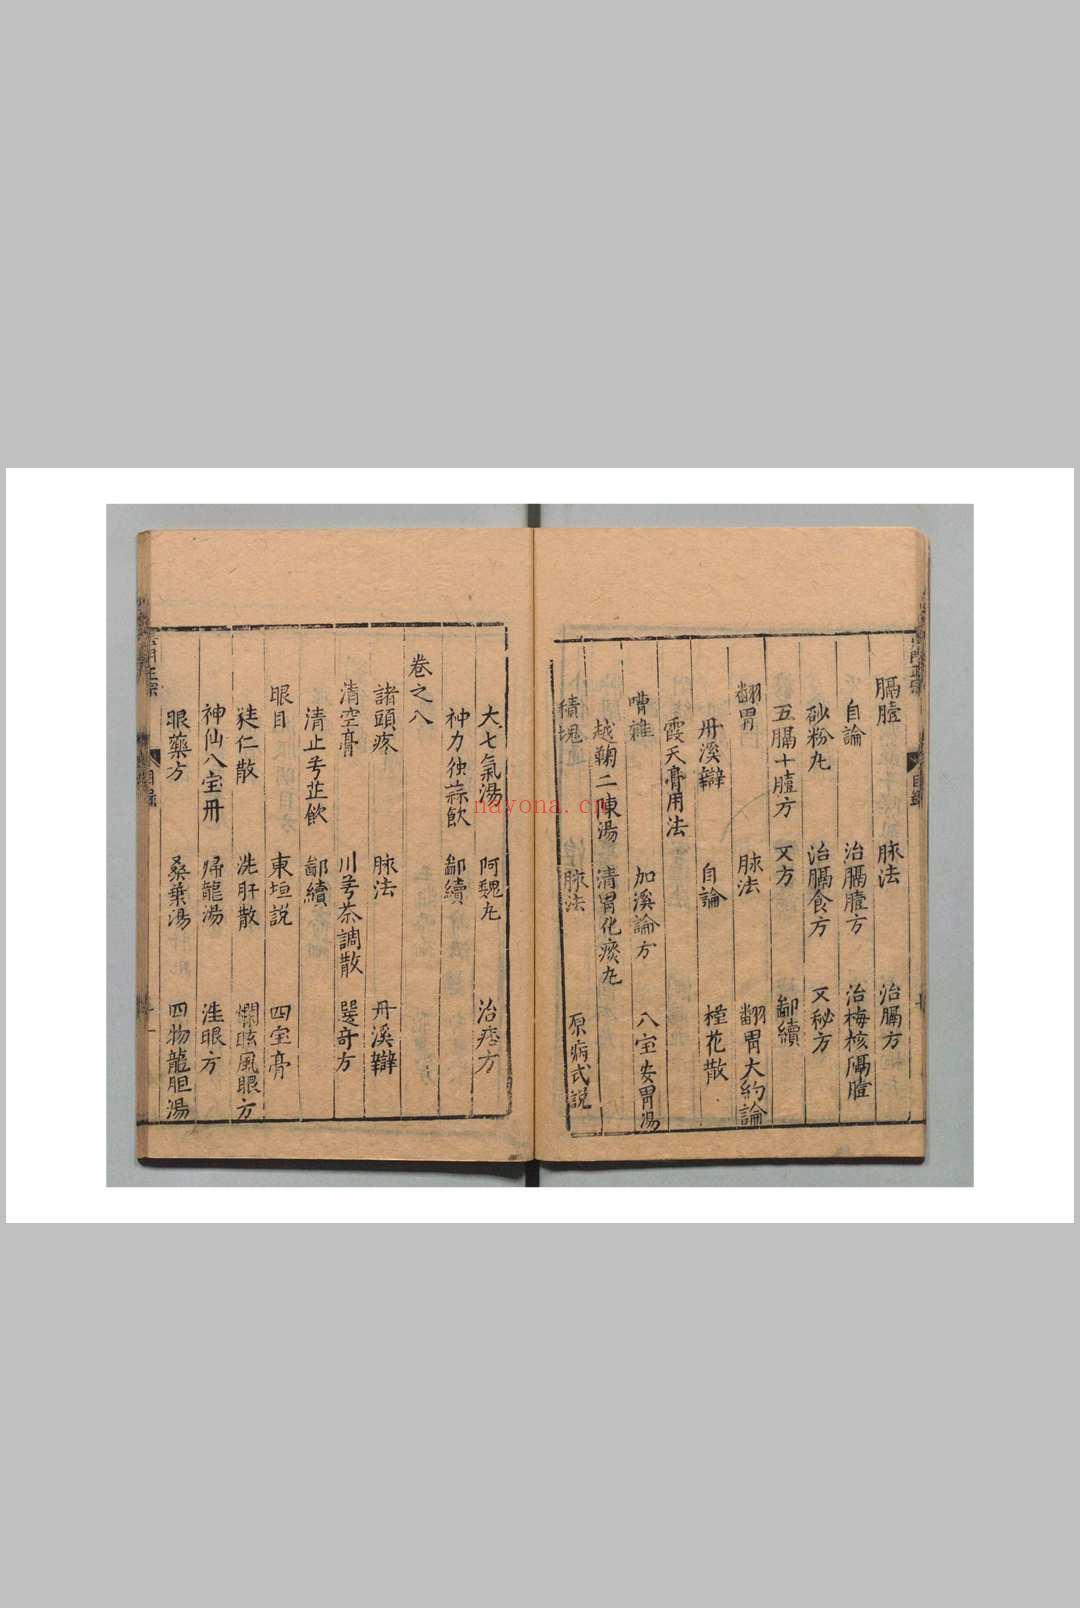 膈膻 脉法 治膈方
自論 治膈膻方 治梅核膈膻
砂粉丸 治膈食方 又秘方
五膈十膻方 又方 鄙續
翻胃 脉法 翻胃大約論
丹溪辯 自論 槿花散
霞天膏用法
嘈雜 加溪論方 八宝安胃湯
越鞠二陳湯 清胃化痰丸
積塊 脉法 原病式説
大七氣湯 阿魏丸 治痞方
神力独蒜飲 鄙續
卷之八
諸頭疼 脉法 丹溪辯
清空膏 川芎茶調散 選奇方
清上芎芷飲 鄙續
眼目 東垣説 四宝膏
蕤仁散 洗肝散 爛眩風眼方
神仙八宝丹 歸龍湯 洼眼方
眼藥方 桑葉湯 四物龍胆湯
門正宗 目錄
門正宗 目錄
nayona.cn